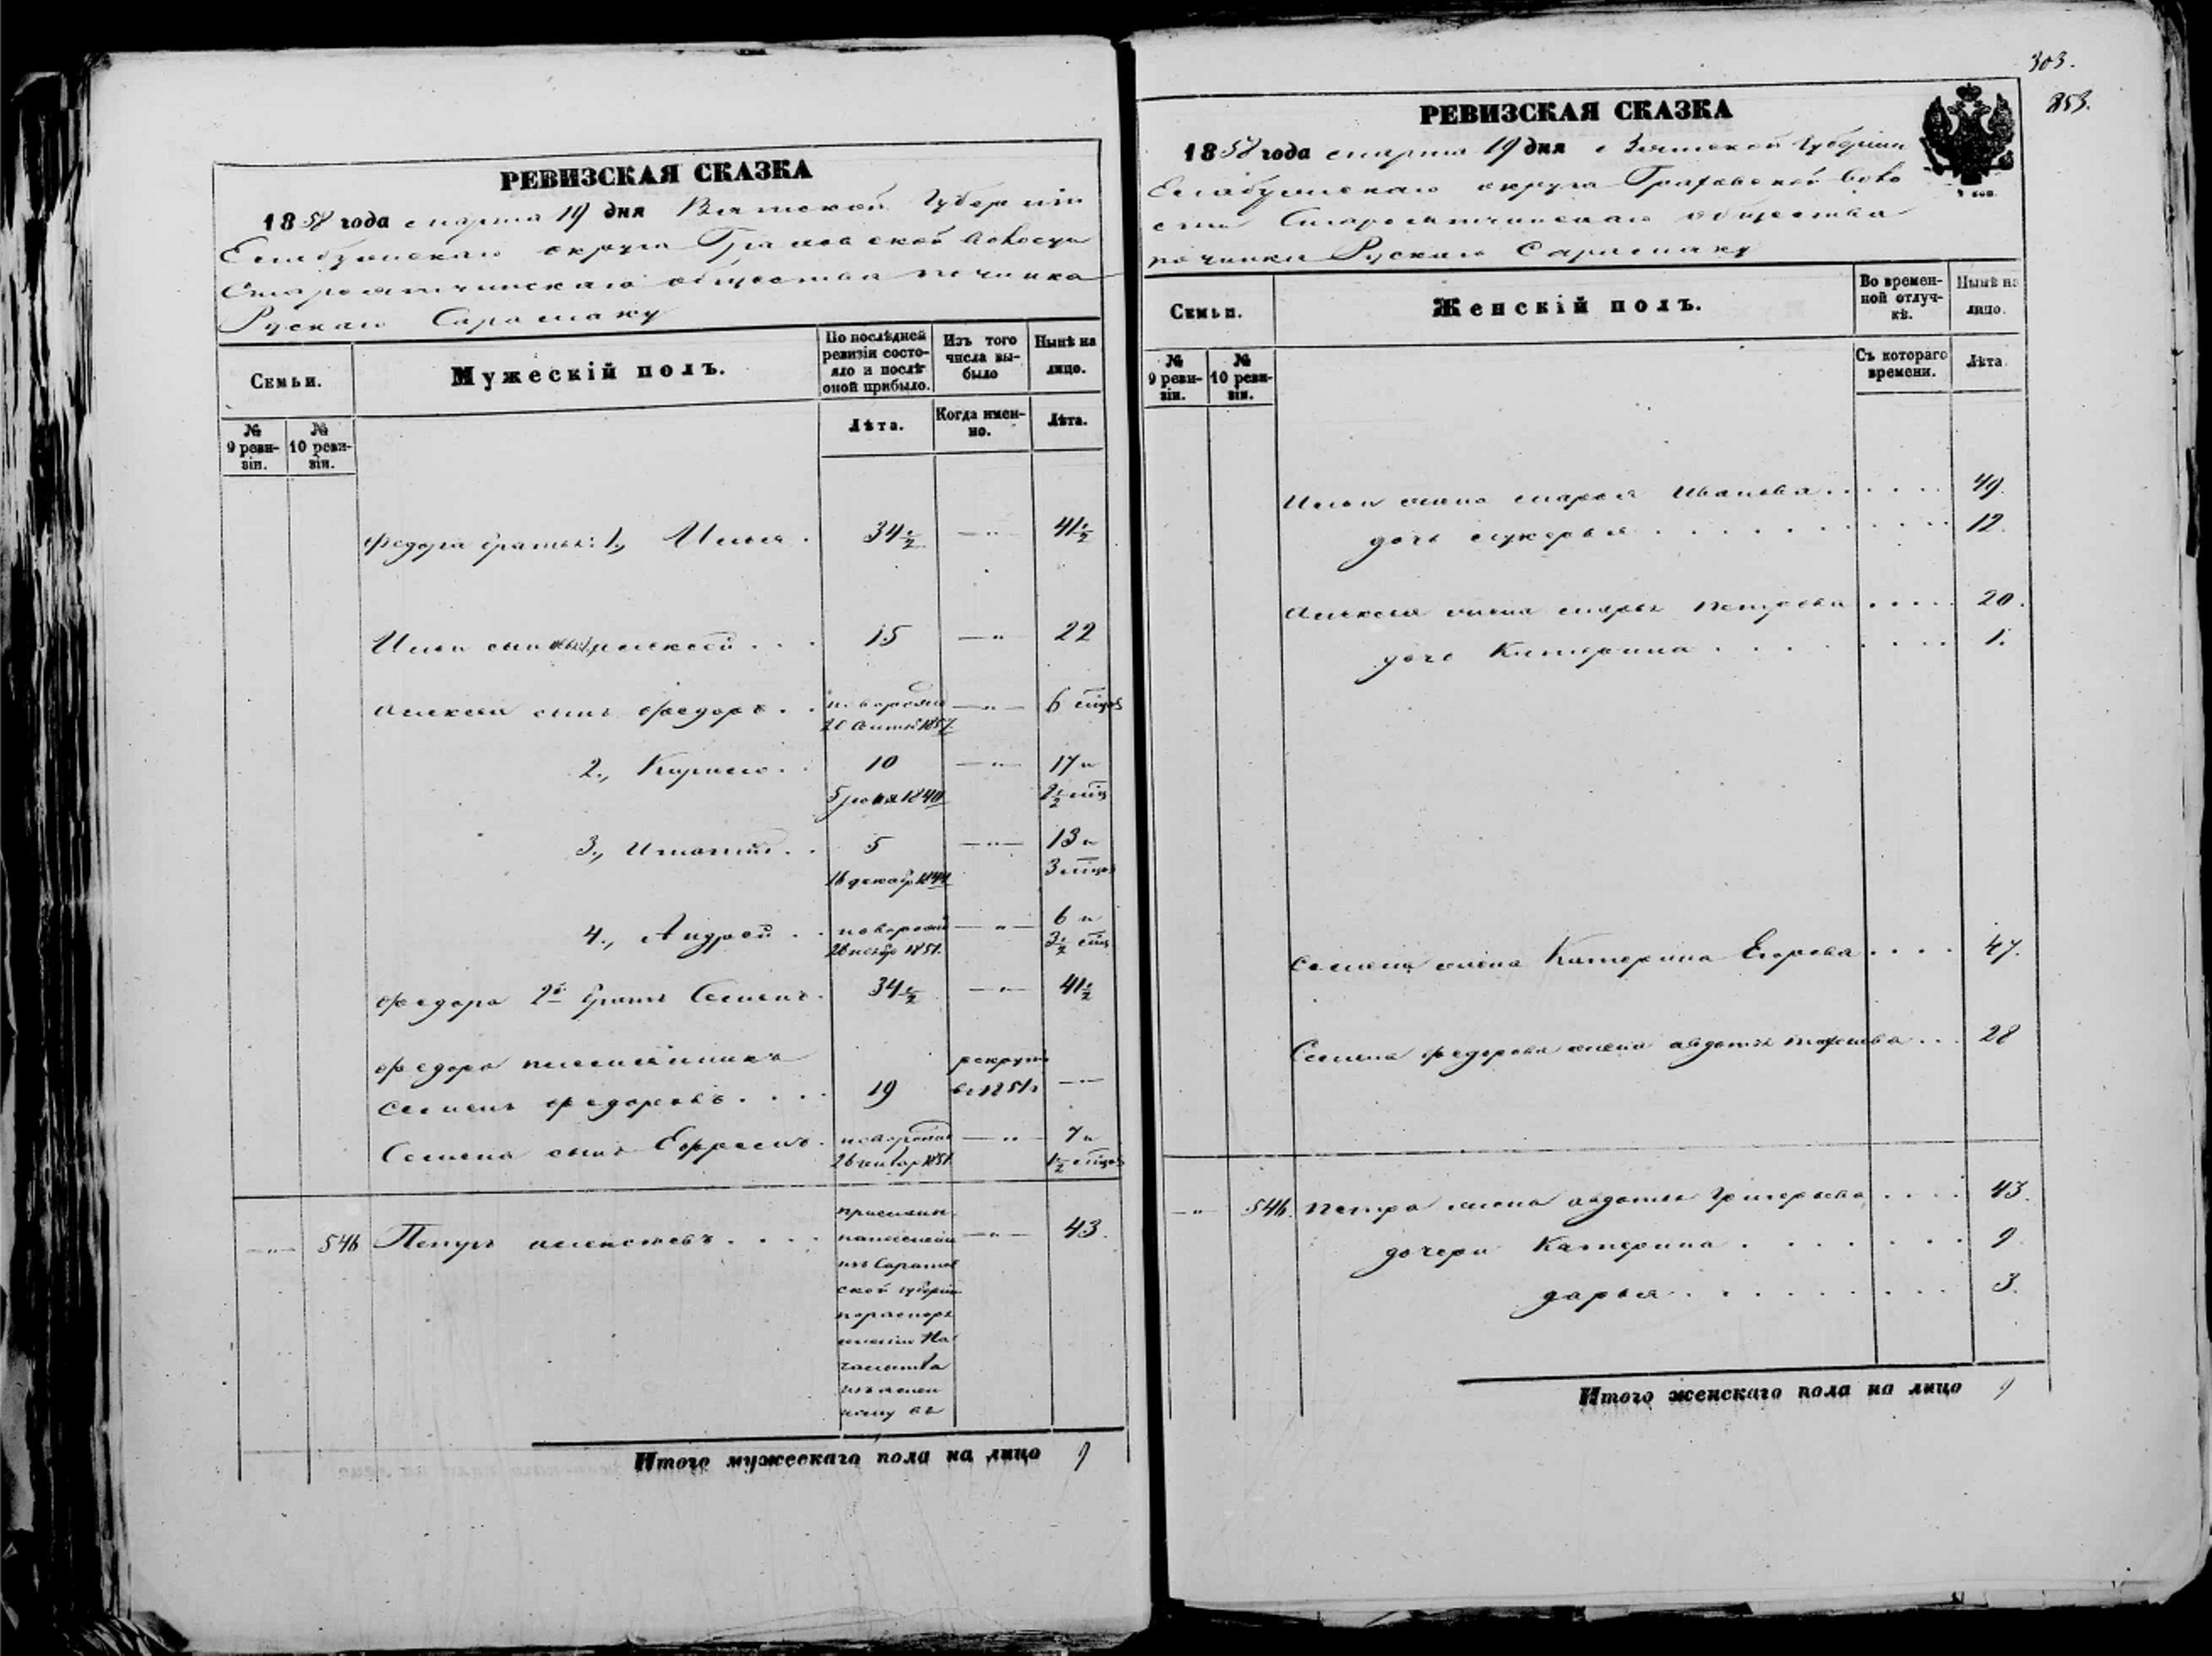 РЕВИЗСКАЯ СКАЗКА
1858 года марта 19 дня Вятской Губернiи
Елабужскаго округа Граховской волости
общества починка
Рускаго Сарамаку
Семьи.
Мужескiй полъ.
По послѣдней ревизiи состояло и послѣ оной прибыло.
Изъ того числа выбыло
Нынѣ на лицо.
№ 9 ревизiи.
№ 10 ревизiи.
Лѣта.
Когда именно.
Лѣта.
Федора братья: 1, Илья . 34½ —„— 41½
Ильи сыновья 1, Алексей . . . 15 —„— 22
Алексея сынъ Федоръ . . новорожд —„— 6 мцов
1857
2., Кирило . . 10 —„— 17 и
1840 2½ мцъ
3., Игнатiй . . 5 —„— 13 и
16 декабр 1844 3 мцов
4., Андрей . . новорожд —„— 6 и
1851. 3½ мцъ
Федора 2й братъ Семенъ . 34½ —„— 41½
Федора племянникъ рекрут
Семенъ Федоровъ . . . . 19 в 1851 г —„—
Семена сынъ Ефремъ . новорожд —„— 7 и
1851 1½ мцов
—„— 546 Петръ Алексеевъ . . . . —„— 43.
изъ Саратов
ской губернiи
по распоря
женiю На
чальства
Итого мужескаго пола на лицо 9
303.
253.
РЕВИЗСКАЯ СКАЗКА
1858 года марта 19 дня Вятской Губернiи
Елабужскаго округа Граховской воло
сти общества
починка Рускаго Сарамаку
Семьи.
Женскiй полъ.
Во временной отлучкѣ.
Нынѣ на лицо.
№ 9 ревизiи.
№ 10 ревизiи.
Съ котораго времени.
Лѣта.
Ильи жена Марья Иванова . . . . . 49.
дочь Лукерья . . . . . . . . 12.
Алексея жена Марья Петрова . . . . 20.
дочь Катерина . . . . . . . 1.
Семена жена Катерина Егорова . . . . 47.
Семена Федорова жена Авдотья Тимофеева . . . 28
—„— 546. Петра жена Авдотья Григорьева . . . . 43.
дочери Катерина . . . . . . . 9
Дарья . . . . . . . . 3.
Итого женскаго пола на лицо 9